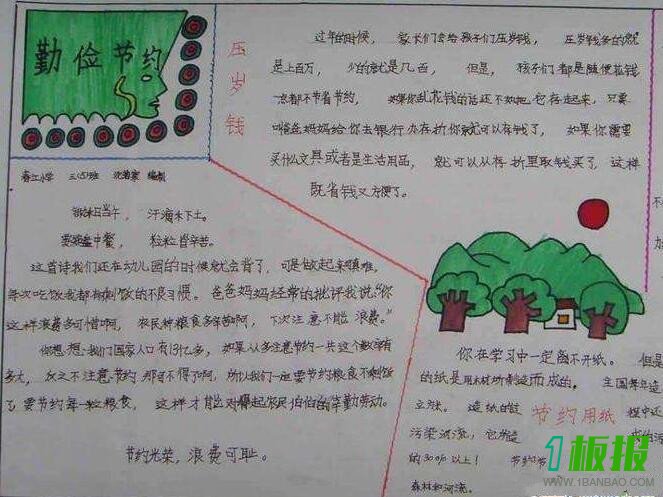 勤俭节约
压岁钱
过年的时候，家长们会给孩子们压岁钱，压岁钱多的就
是上百万，少的就是几百，但是，孩子们都是随便花钱
一点都不节省节约，如果你乱花钱的话还不如把它存起来，只要
爸爸妈妈给你去银行办存折你就可以存钱了，如果你需要
买什么文具或者是生活用品，就可以从存折里取钱买了，这样
既省钱又方便了。
春江小学 三(5)班 编制
锄禾日当午，汗滴禾下土。
盘中餐，粒粒皆辛苦。
这首诗我们还在幼儿园的时候就会背了，可是做起来真难，
每次吃饭我都有剩饭的不良习惯。爸爸妈妈经常的批评我说：“你
这样浪费多可惜啊，农民种粮食多辛苦啊，下次注意不能浪费。”
你想想我们国家人口有13亿多，如果人多注意节约一共这个数字有
多大，反之不注意节约那可不得了啊，所以我们一定要节约粮食不剩饭
了要节约每一粒粮食，这样才能对得起农民伯伯的辛勤劳动。
节约光荣，浪费可耻。
你在学习中一定离不开纸。但是
的纸是用木材所制造而成的。全国每年造
立方米。造纸的
节约用纸
程中还
污染河流，它所造
的30%以上！节约
森林和河流。
1板报
WWW.1BANBAO.COM